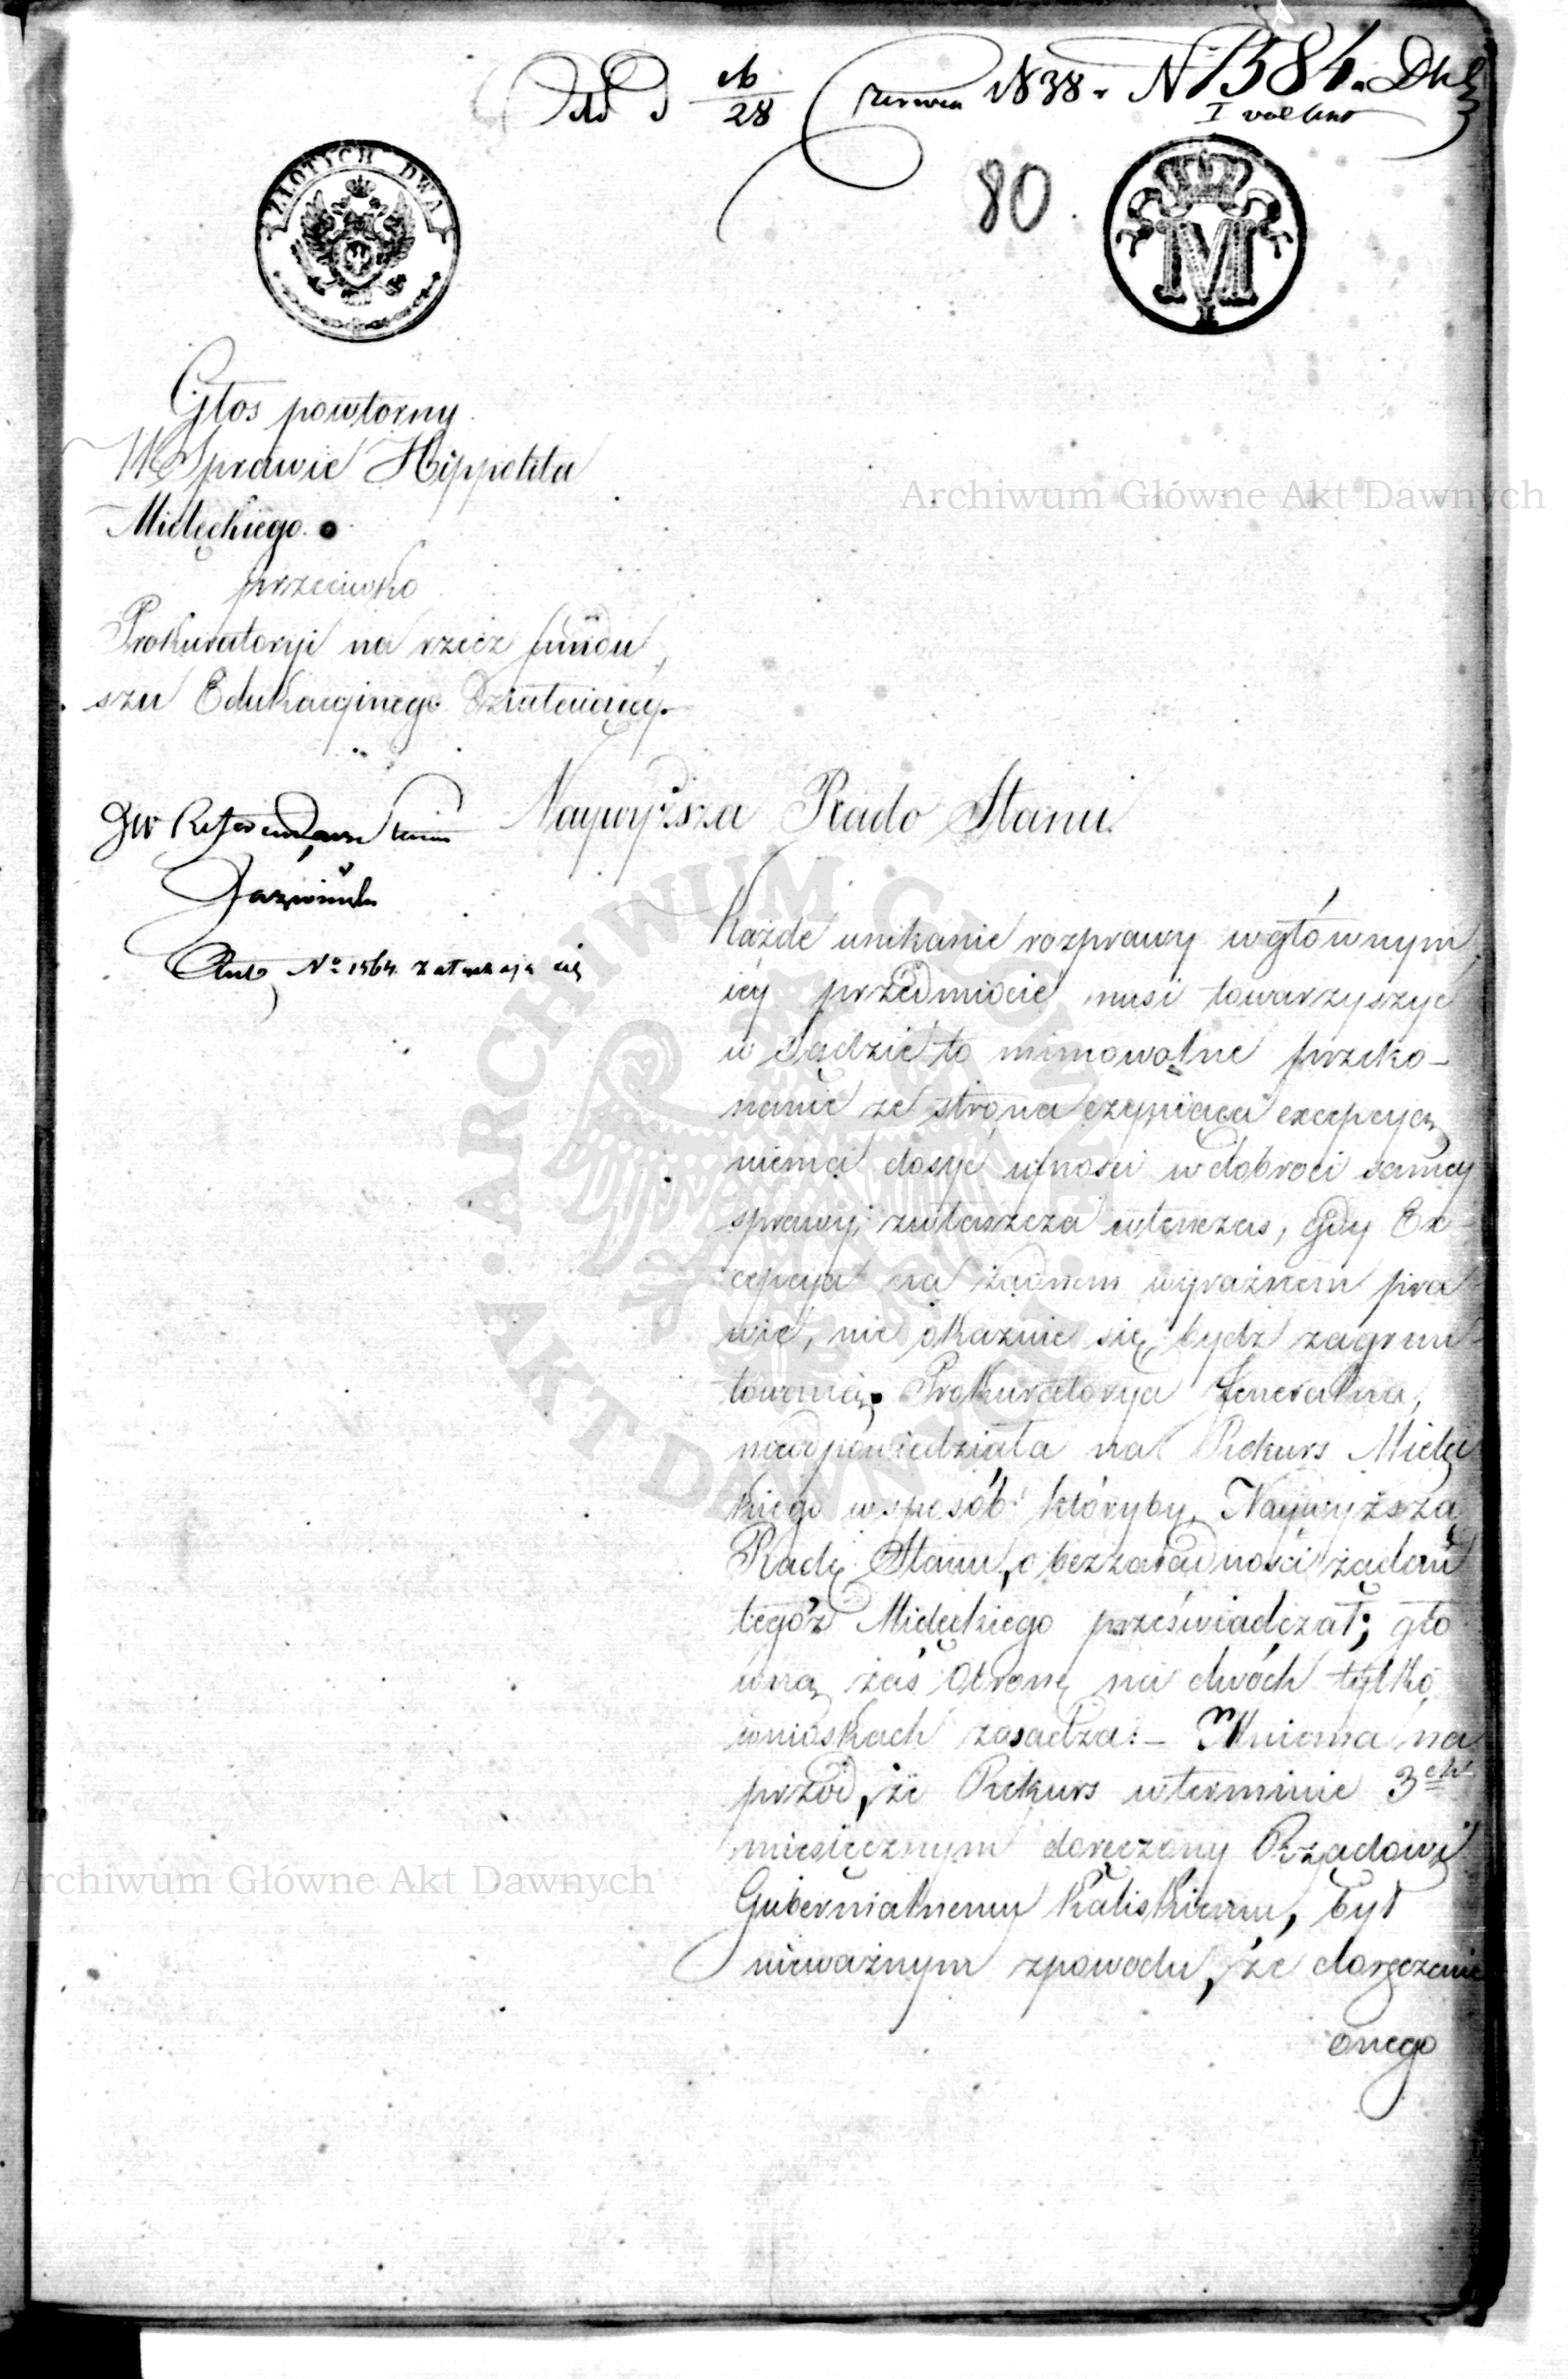 28 Czerwca 1838. N 1584.
80.
ZŁOTYCH DWA
M
Głos powtorny
W Sprawie Hippolita
Mielęckiego.
przeciwko
Prokuratoryi na rzecz fundu
szu Edukacyinego działaiącey.
Naywyższa Rado Stanu
No 1564 załącza się
Każde unikanie rozprawy wgłównym
iey przedmiocie musi towarzyszyć
w Sądzie to mimowolne przeko-
nanie że strona czyniąca excepcyą
niema dosyć ufności w dobroci samey
sprawy; zwłaszcza wtenczas, gdy Ex-
cepcya na żadnem wyraźnem pra
wie, nie okaźuie się bydź zagrun
towaną. Prokuratorya Jeneralna,
nieodpowiedziała na Rekurs Mielę
kiego wsposób któryby, Naywyższą
Radę Stanu, o bezzasadności żądań
tegóż Mielęckiego przeświadczał; głó
wną zaś obronę na dwóch tylko
wnioskach zasadza:- Mniema na
przód, że Rekurs wterminie 3ch
miesięcznym doręczony Rządowi
Gubernialnemu Kaliskiemu, był
nieważnym zpowodu, że doręczenie
onego
Archiwum Główne Akt Dawnych
Archiwum Główne Akt Dawnych
ARCHIWUM GŁÓWNE AKT DAWNYCH